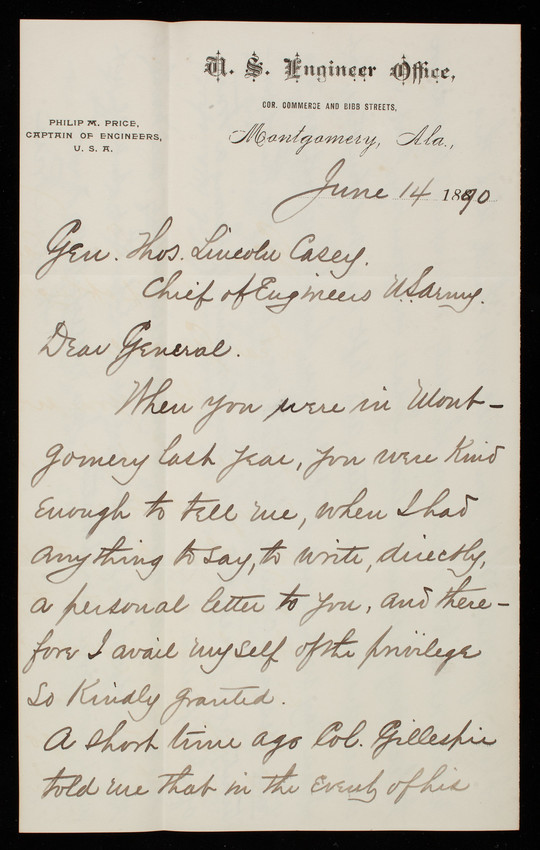 U. S. Engineer Office,
COR. COMMERCE AND BIBB STREETS,
PHILIP M. PRICE,
CAPTAIN OF ENGINEERS,
U. S. A.
Montgomery, Ala.,
June 14 1890
Gen. Thos. Lincoln Casey.
Chief of Engineers U.S. Army.
Dear General.
When you were in Mont-
gomery last year, you were kind
enough to tell me, when I had
anything to say, to write, directly,
a personal letter to you, and there-
fore I avail myself of the privilege
so kindly granted.
A short time ago Col. Gillespie
told me that in the event of his